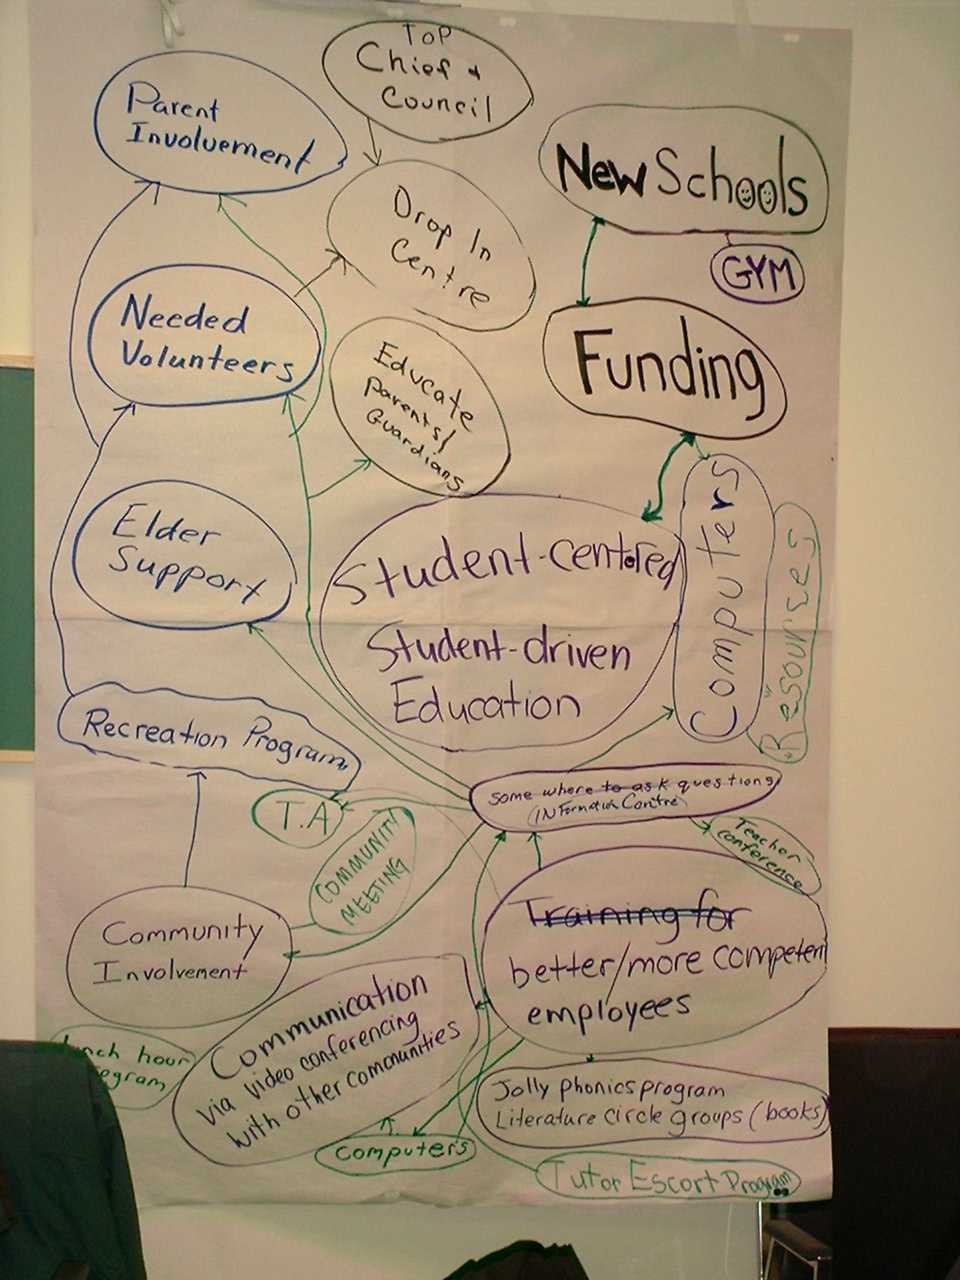 TOP
Chief +
Council
Parent
Involvement
New Schools
GYM
Drop In
Centre
Needed
Volunteers
Funding
Educate
parents/
Guardians
Elder
Support
Student-centered
Student-driven
Education
Computers
Resourses
Recreation Program
T.A
Some where to ask questions
INFormation Centre
Teacher
conference
COMMUNITY
MEETING
Training for
better/more competent
employees
Community
Involvement
Communication
via video conferencing
with other comonunities
hour
Jolly phonics program
Literature circle groups (books)
computers
Tutor Escort Program